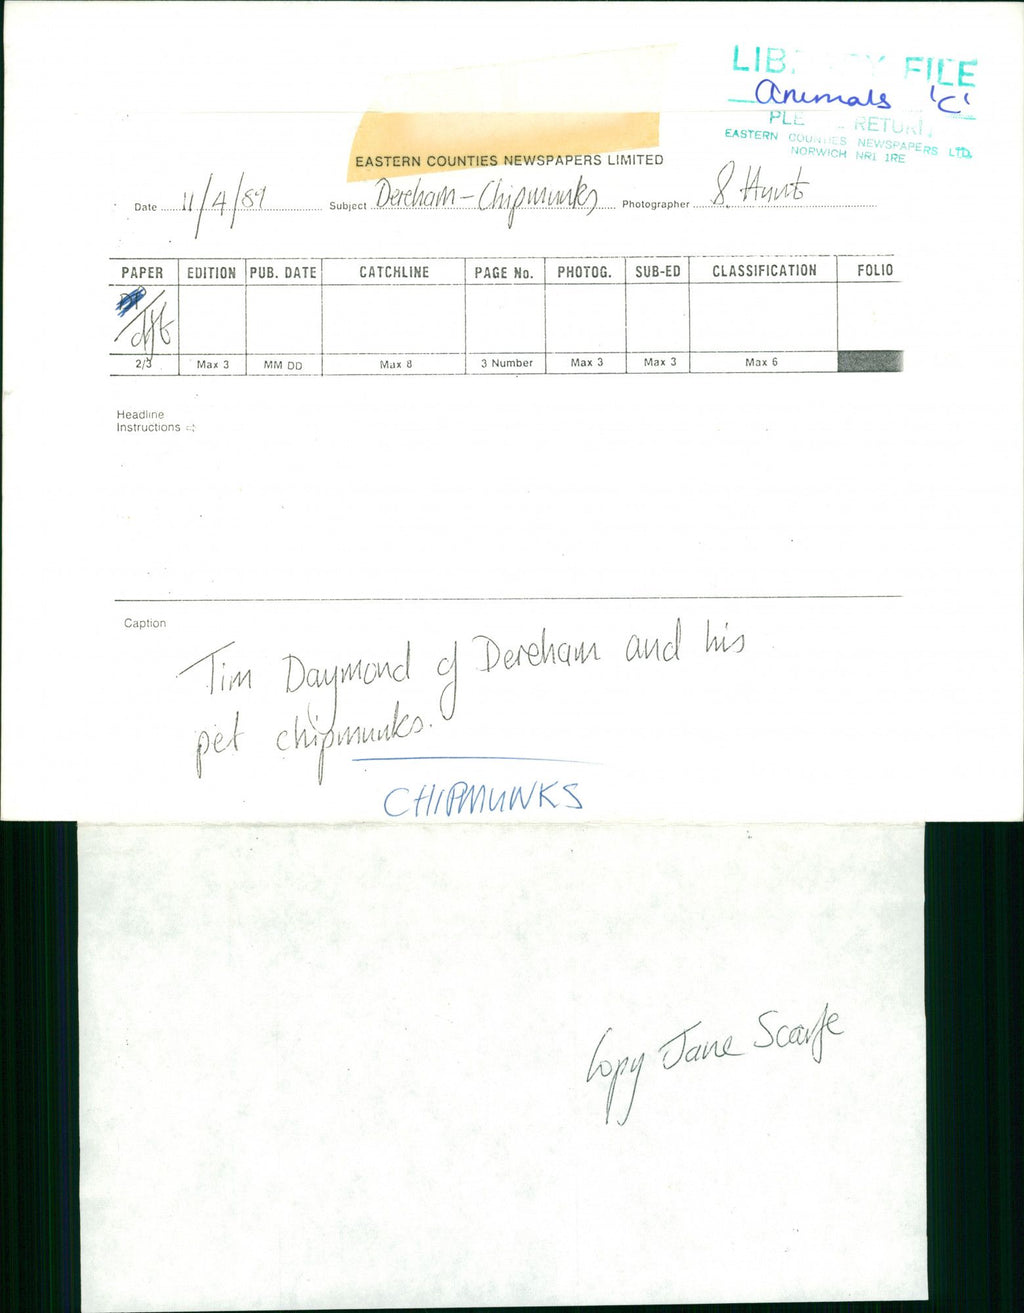 LIBRARY FILE
Animals 'C'
PLE RETURN
EASTERN COUNTIES NEWSPAPERS LTD.
NORWICH NR1 1RE
EASTERN COUNTIES NEWSPAPERS LIMITED
Date 11/4/89 Subject Dereham - Chipmunks Photographer S. Hunt
PAPER EDITION PUB. DATE CATCHLINE PAGE No. PHOTOG. SUB-ED CLASSIFICATION FOLIO
dft
2/3 Max 3 MM DD Max 8 3 Number Max 3 Max 3 Max 6
Headline
Instructions ⇨
Caption
Tim Daymond of Dereham and his
pet chipmunks.
CHIPMUNKS
Copy Jane Scarfe